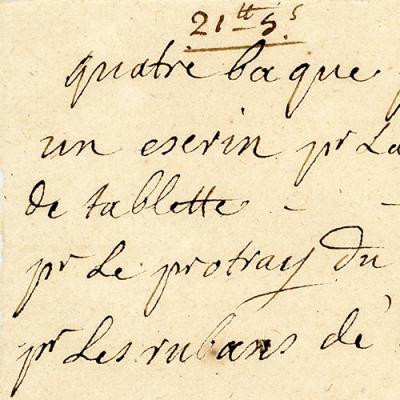 21tt 5s
quatre baque
un escrin pr La
de tablette - -
pr Le protray du
pr Les rubans de